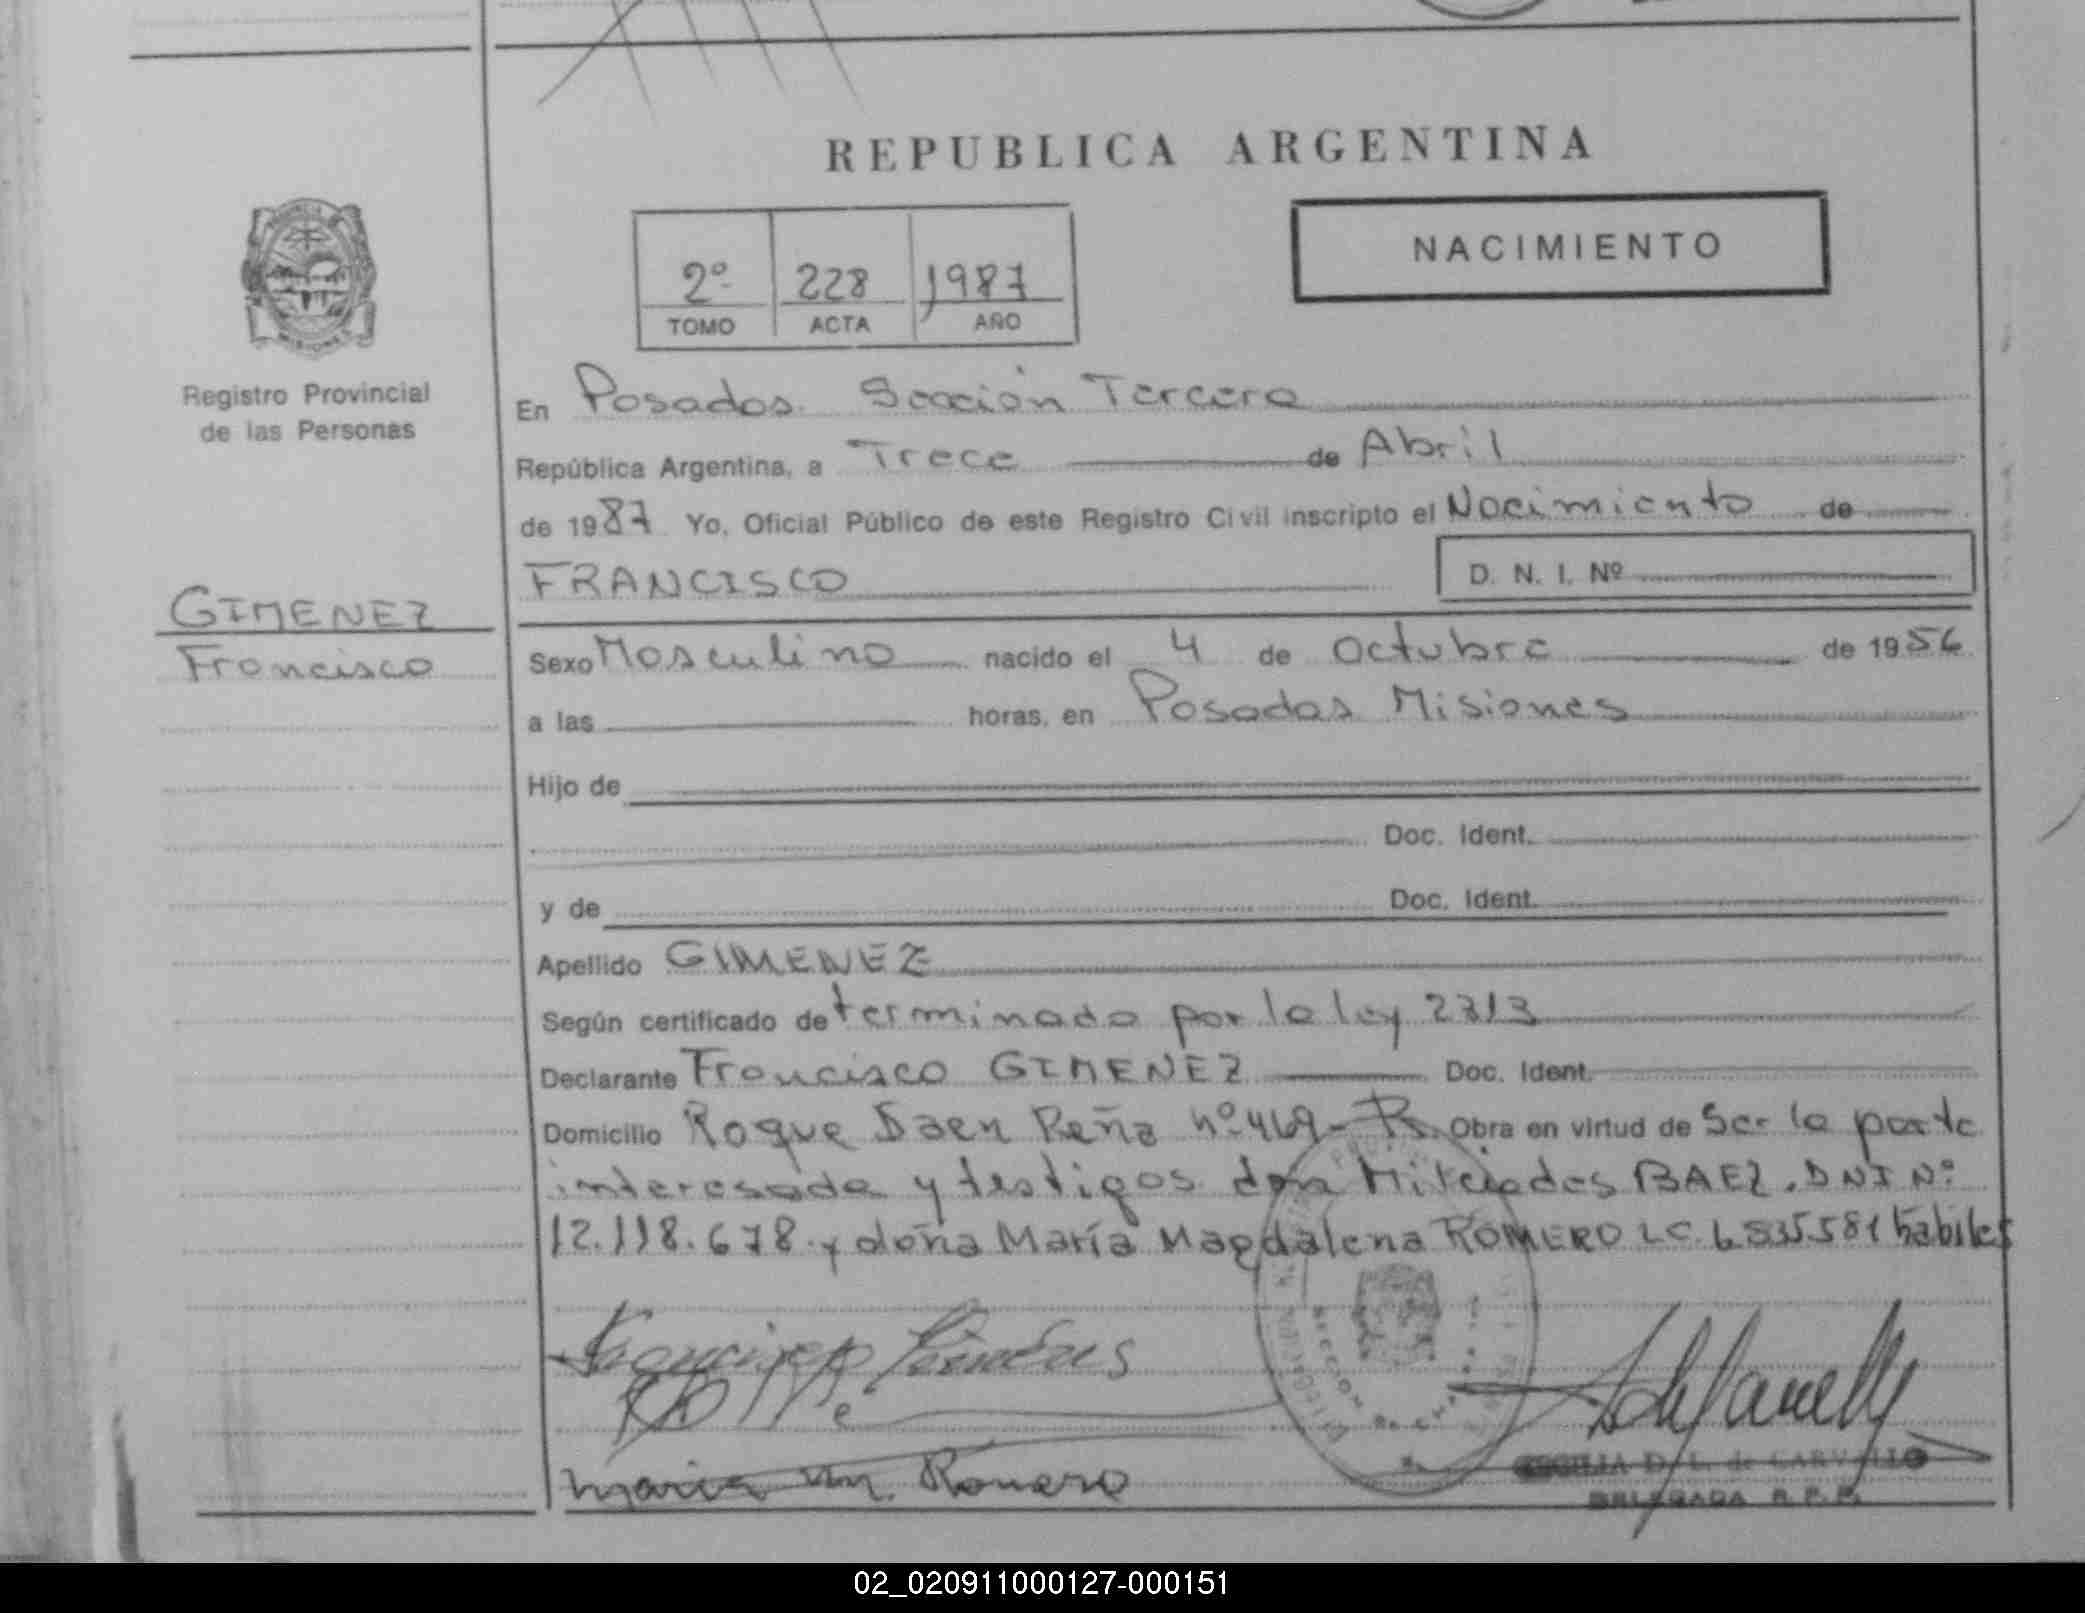 REPUBLICA ARGENTINA
2º 228 1987
TOMO ACTA AÑO
NACIMIENTO
Registro Provincial
de las Personas
GIMENEZ
Francisco
En Posadas. Sección Tercera
República Argentina, a Trece de Abril
de 1987 Yo, Oficial Público de este Registro Civil inscripto el Nacimiento de
FRANCISCO D. N. I. Nº
Sexo Masculino nacido el 4 de Octubre de 1956
a las horas, en Posadas Misiones
Hijo de
Doc. Ident.
y de Doc. Ident.
Apellido GIMENEZ
Según certificado determinado por la ley 2313
Declarante Francisco GIMENEZ Doc. Ident.
Domicilio Roque Saen Peña nº 469- Obra en virtud de Ser la parte
interesada y testigos don Milciades BAEZ. DNI Nº
12.118.678 y doña María Magdalena ROMERO LC. 6.535.581 habiles
Maria M. Romero
CECILIA D. L. de CARVALLO
DELEGADA R. P. P.
02_020911000127-000151